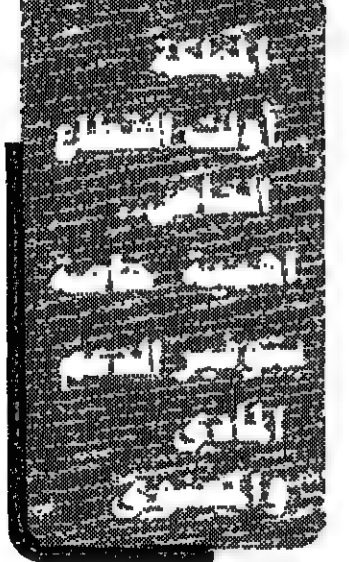 القطاع
أولت القطاع
الخاص
أهمية خاصة
لتوفير الدعم
المادي
والمعنوي